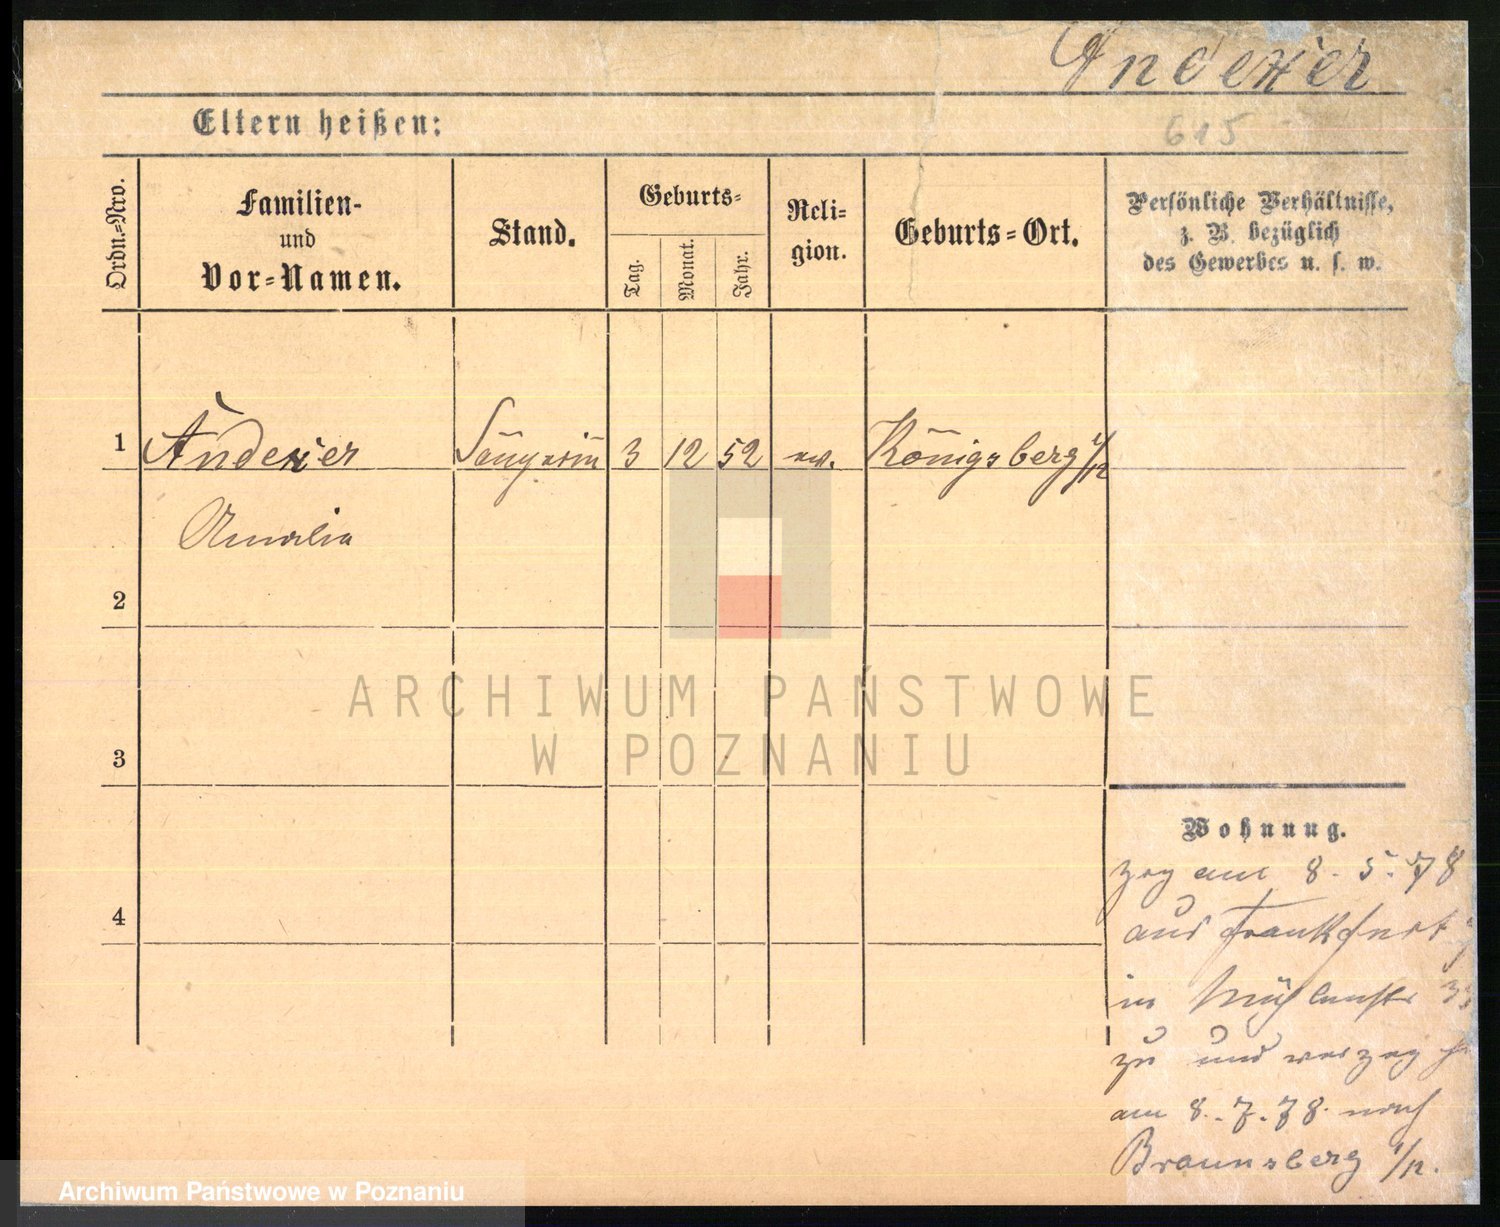 Andexer
615
Eltern heißen:
Ordn.-Nro.
Familien-
und
Vor-Namen.
Stand.
Geburts-
Tag.
Monat.
Jahr.
Reli-
gion.
Geburts-Ort.
Persönliche Verhältnisse,
z. B. bezüglich
des Gewerbes u. s. w.
1 Andexer Sängerin 3 12 52 ev. Königsberg
Amalia
2
ARCHIWUM PAŃSTWOWE
W POZNANIU
3
Wohnung.
zog am 8.5.78
4
aus Frankfurt
in Mühlenstr
zu und verzog
am 8.7.78 nach
Braunsberg
Archiwum Państwowe w Poznaniu